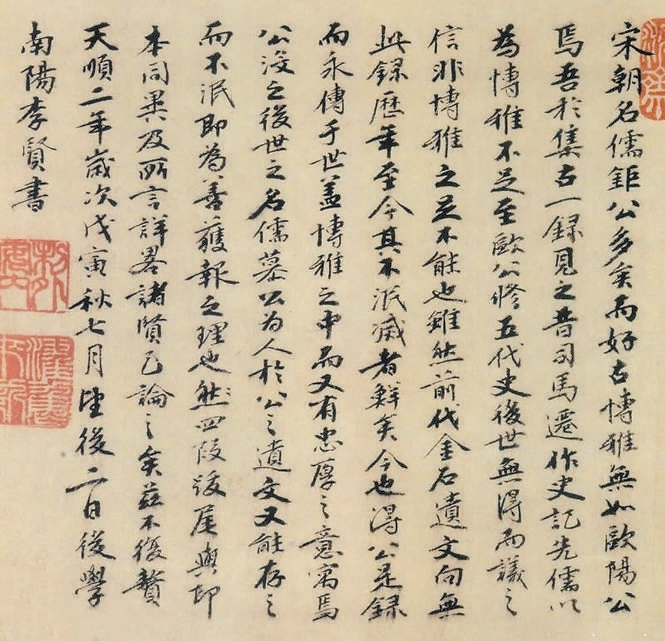 宋朝名儒鉅公多矣而好古博雅無如歐陽公
焉吾於集古一錄見之昔司馬遷作史記先儒以
為博雅不足至歐公修五代史後世無得而議之
信非博雅之足不能也雖然前代金石遺文向無
此錄歷年至今其不泯滅者鮮矣今也得公是錄
而永傳于世蓋博雅之中而又有忠厚之意寓焉
公没之後世之名儒慕公為人於公之遺文又能存之
而不泯即為善獲報之理也然四段後尾與印
本同異及所言詳畧諸賢已論之矣茲不復贅
天順二年歲次戊寅秋七月望後二日後學
南陽李賢書